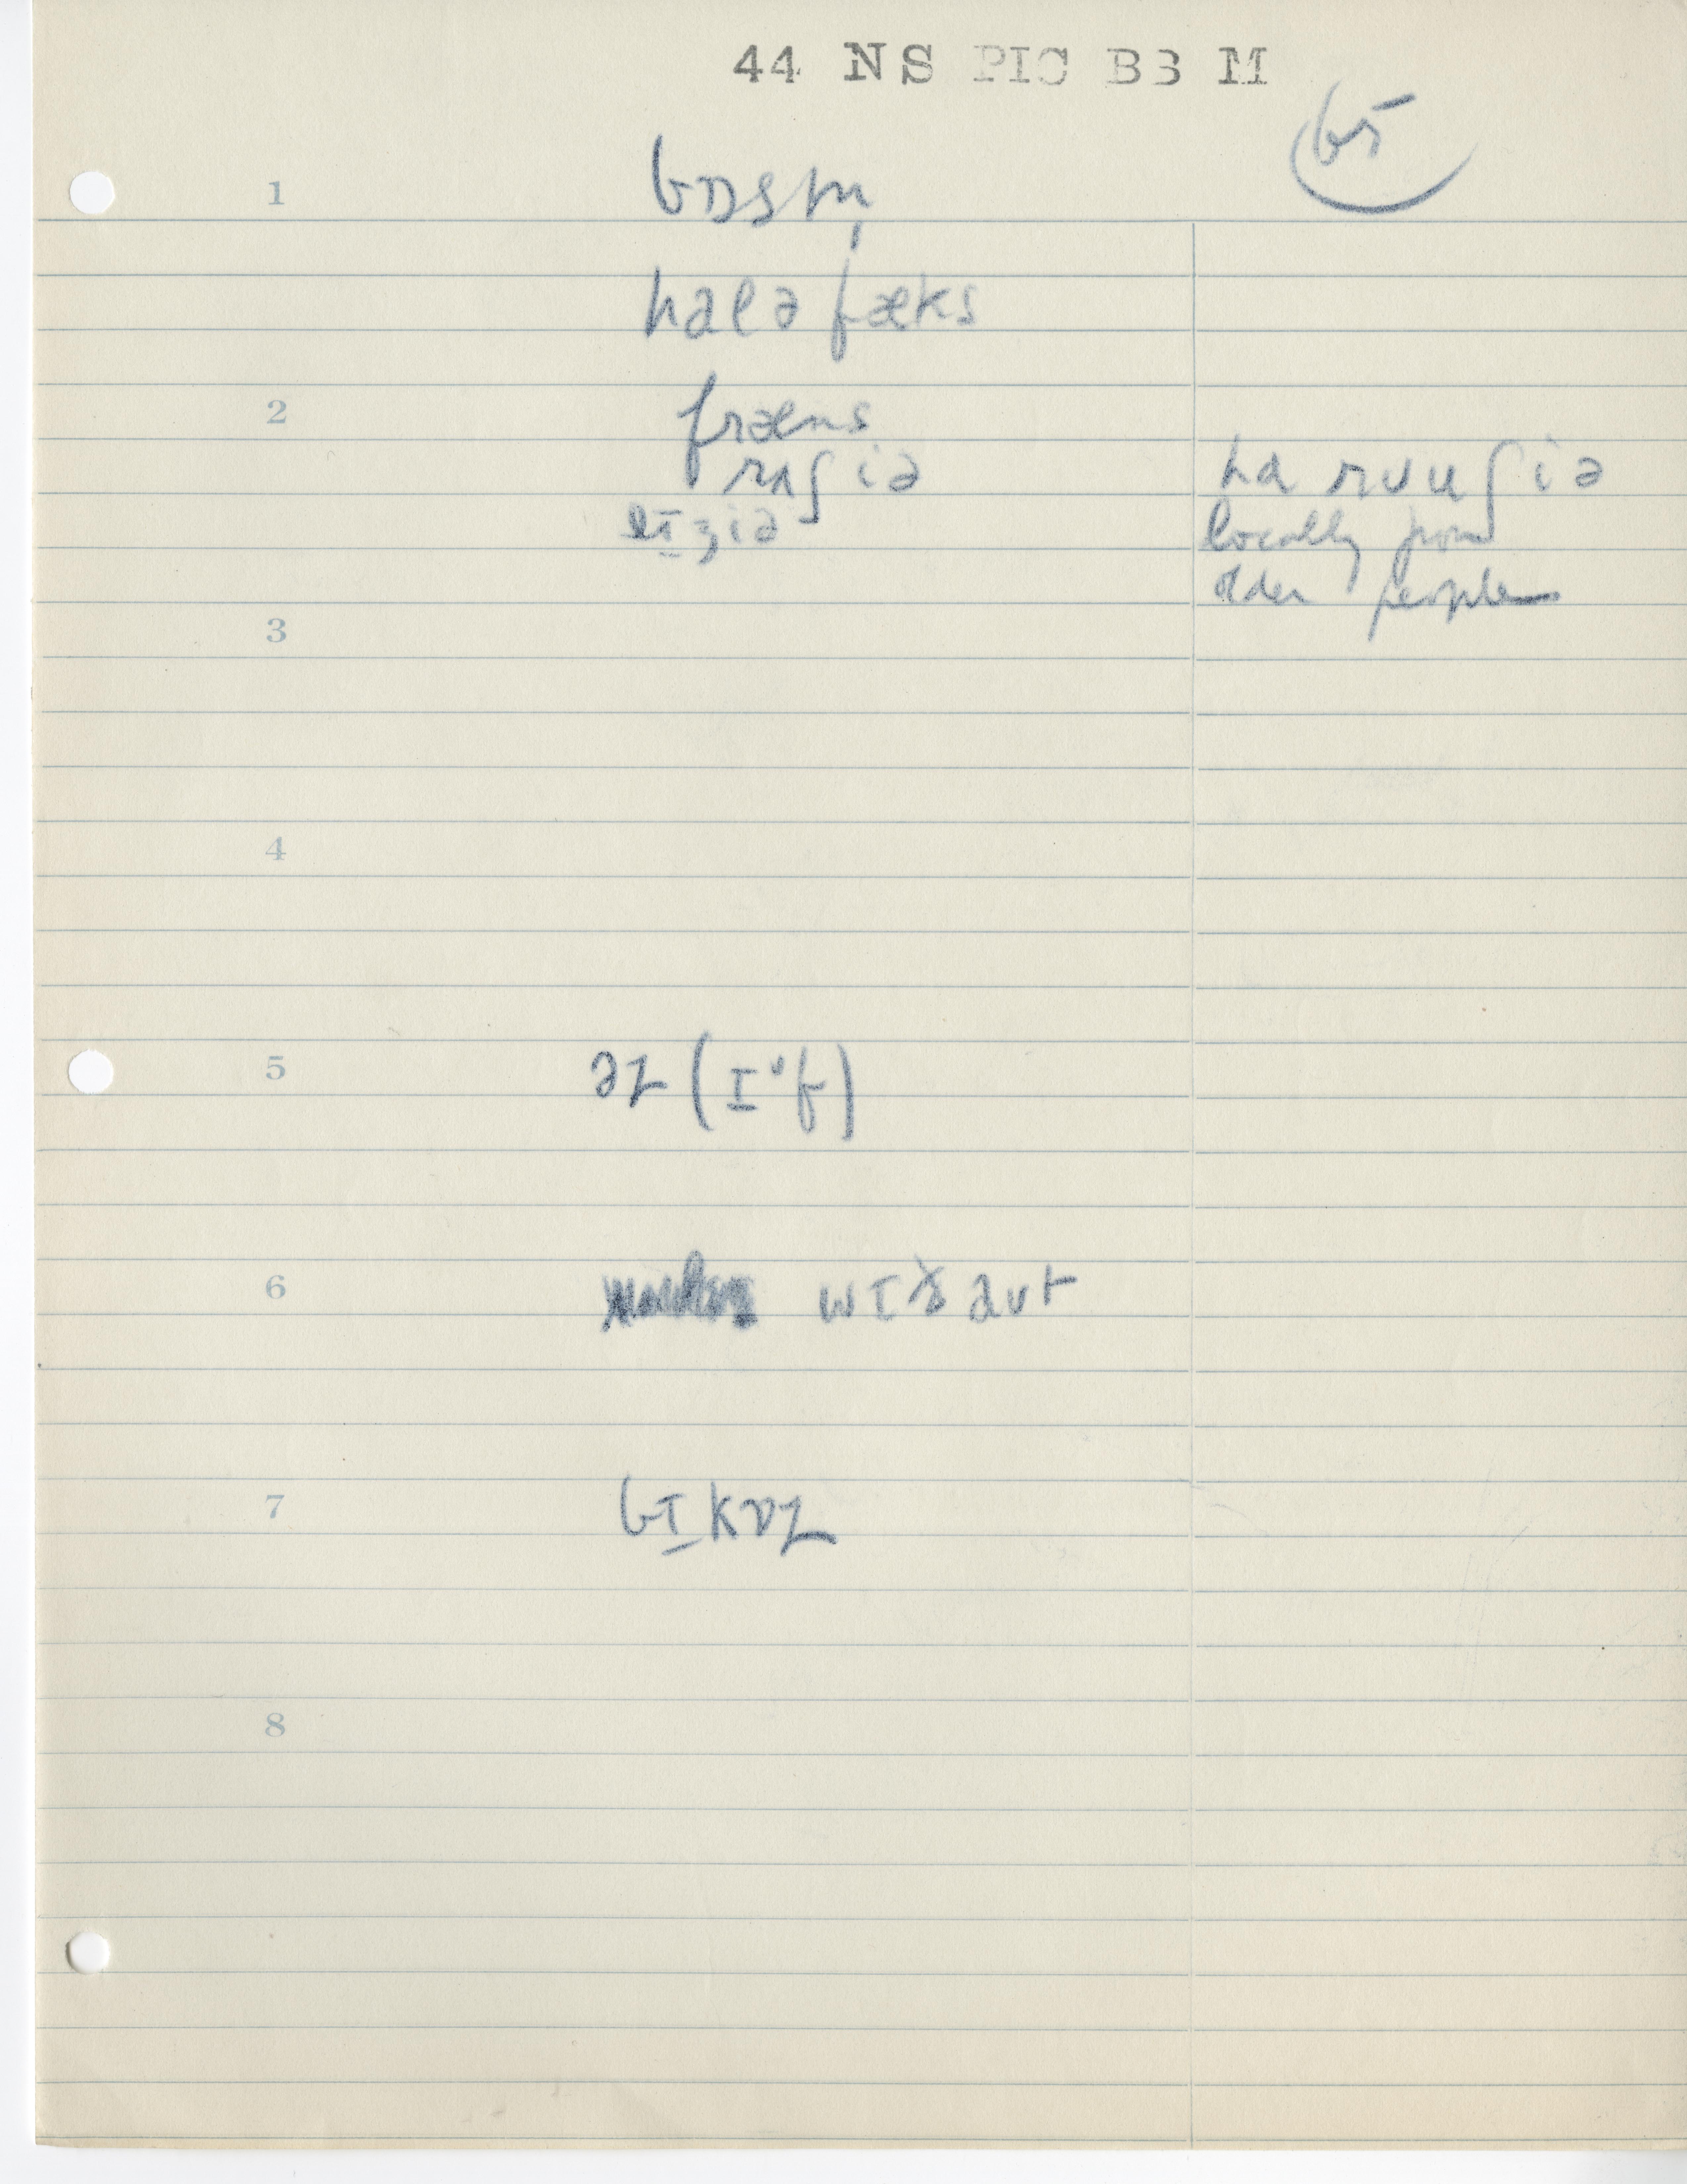 44 NS PIC BB M
65
1 bɒstn̩
haləfæks
2 fræns
rʌʃiə
La rʊuʃiə
eɪʒiə
locally from
older people
3
4
5 əz (ɪᵛf)
6 wɪðaʊt
7 bɪkɒz
8